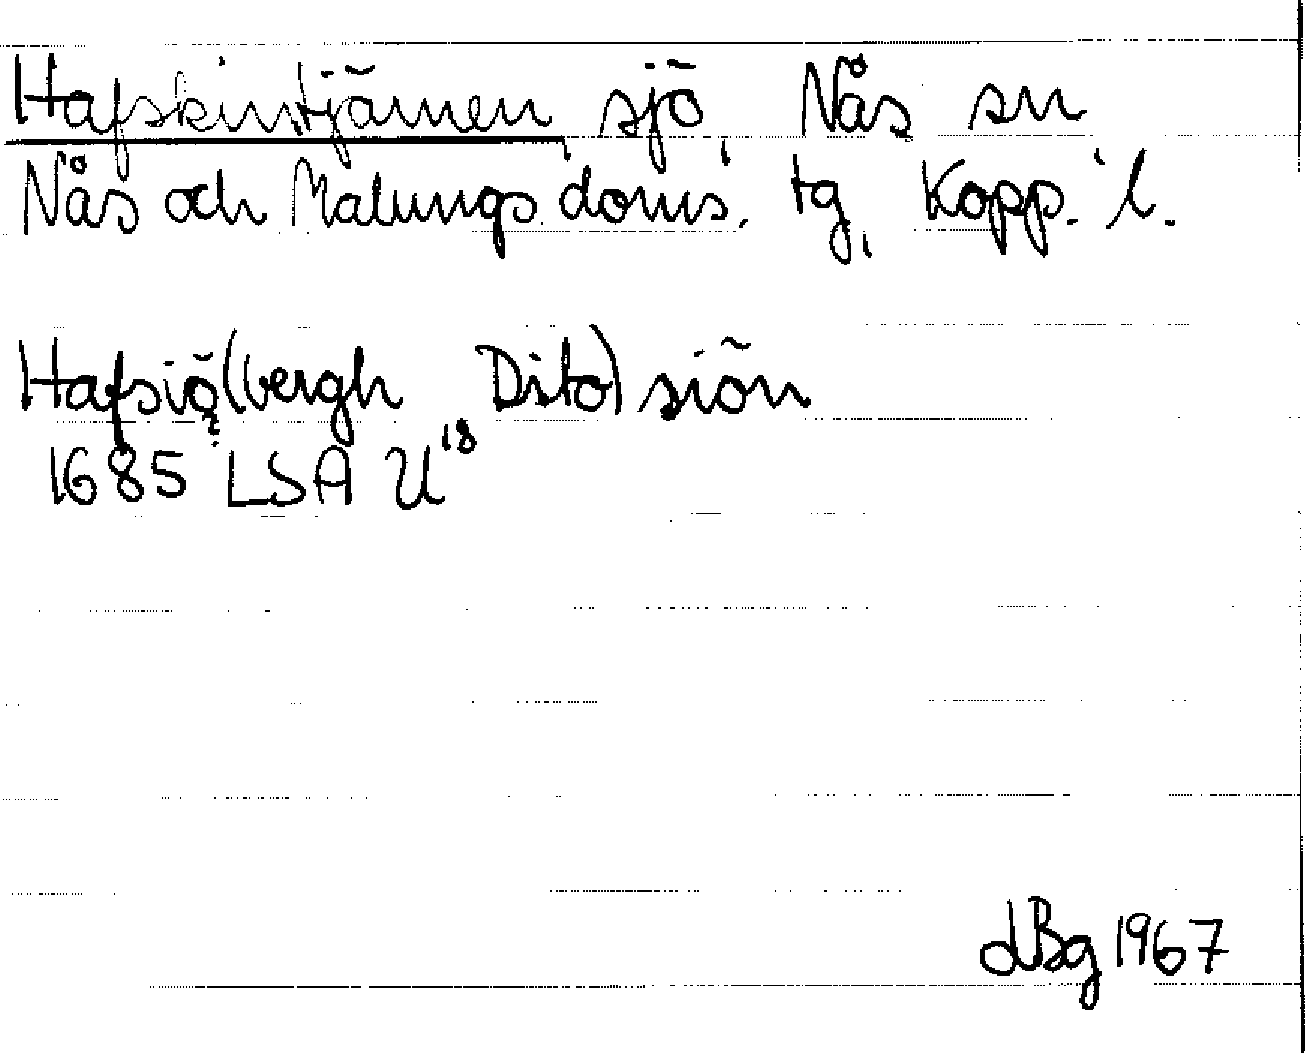 Hafskinstjärnen sjö, Nås sn
Nås och Malungs doms. tg, Kopp. l.
Hafsiö(bergh Dito) siön
1685 LSA U18
dBg 1967